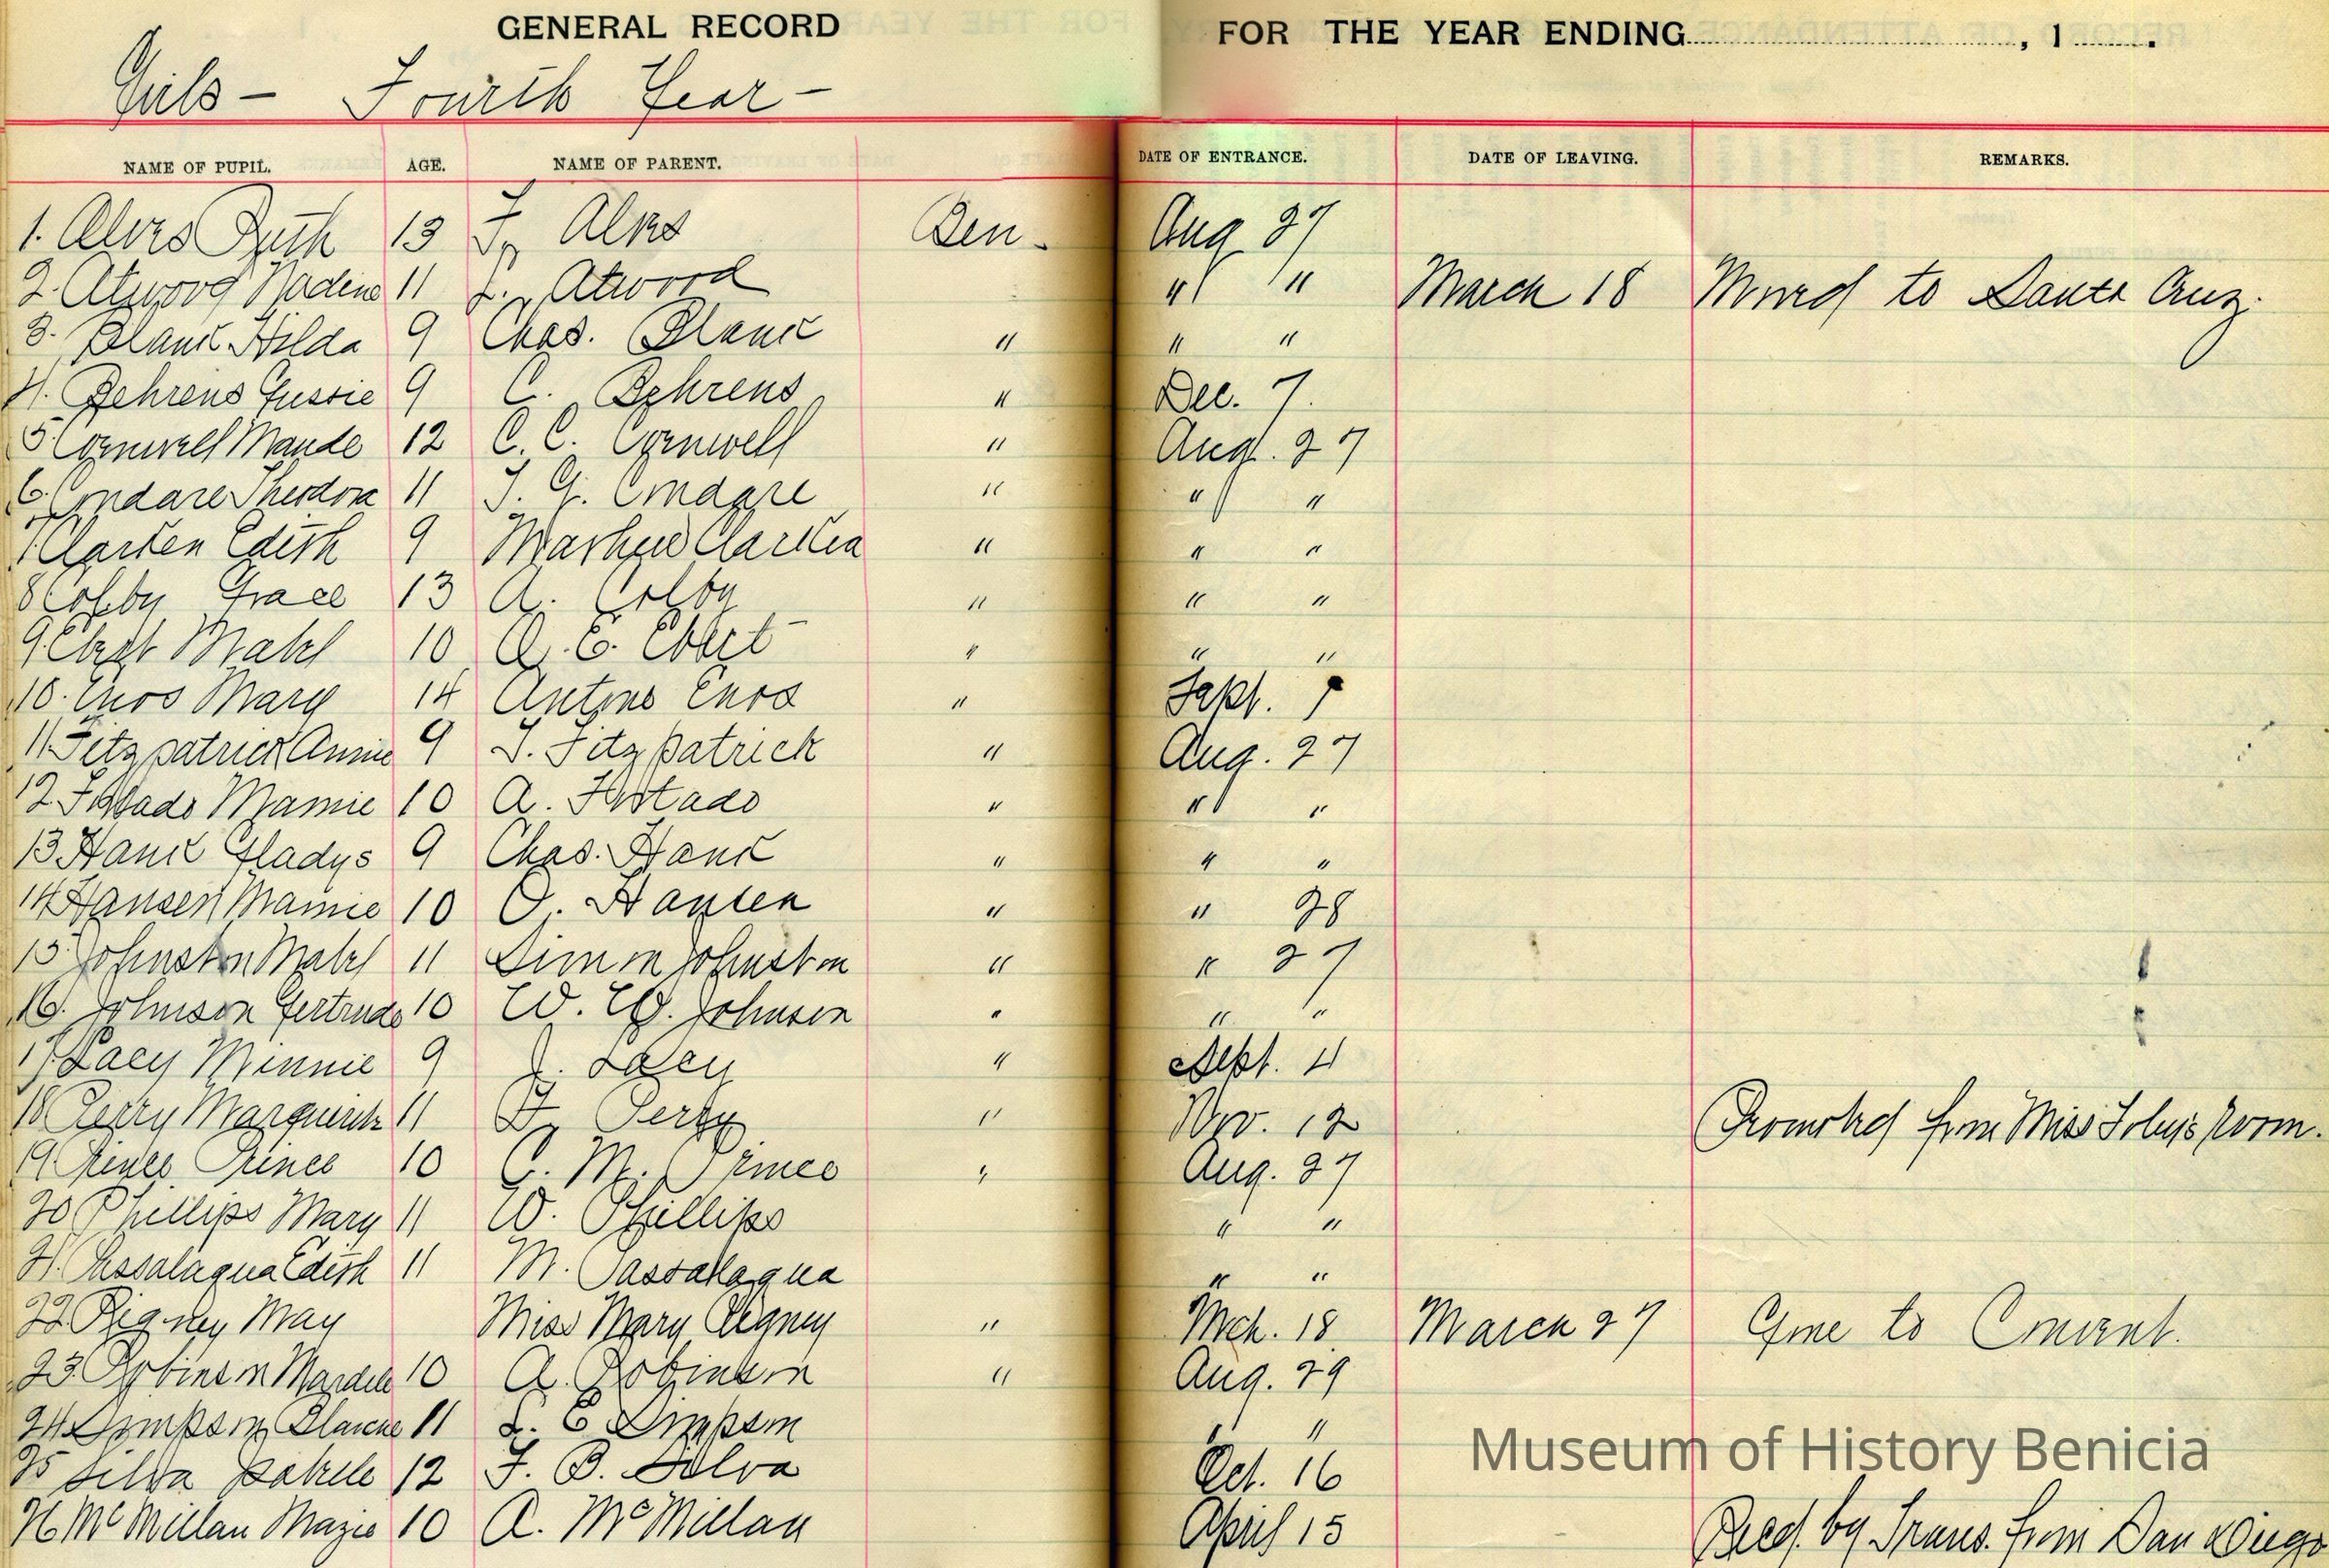 GENERAL RECORD FOR THE YEAR ENDING , 1 .
Girls - Fourth Year -
NAME OF PUPIL. AGE. NAME OF PARENT. DATE OF ENTRANCE. DATE OF LEAVING. REMARKS.
1. Alvrs Ruth 13 Alvrs Ben. Aug 27
2. Atwood Nadine 11 L. Atwood " " March 18 Moved to Santa Cruz.
3. Blank Hilda 9 Chas. Blank " " "
4. Behrens Gussie 9 C. Behrens " Dec. 7.
5 Cornwell Maude 12 C. C. Cornwell " Aug. 27
6. Condare Theodora 11 Condare " " "
7 Clarken Edith 9 Clarken " " "
8 Colby Grace 13 A. Colby " " "
9. Ebert Mabel 10 A. E. Ebert " " "
10. Enos Mary 14 Antone Enos " Sept.
11 Fitzpatrick Annie 9 Fitzpatrick " Aug. 27
12 Furtado Mamie 10 A. Furtado " " "
13 Hank Gladys 9 Chas. Hank " " "
14 Hansen Mamie 10 O. Hansen " " 28
15 Johnston Mabel 11 Simon Johnston " " 27
16. Johnson Gertrude 10 W. W. Johnson " " "
17 Lacey Minnie 9 J. Lacey " Sept. 4
18 Perry Marguerite 11 Perry " Nov. 12 Promoted from Miss Room.
19 Prince 10 G. M. Prince " Aug. 27
20 Phillips Mary 11 W. Phillips " "
21. Passalaqua Edith 11 M. Passalaqua " "
22 Rigney May Miss Mary Rigney " Mch. 18 March 27 Gone to Convent.
23. Robinson 10 A. Robinson " Aug. 29
24 Simpson Blanche 11 L. E Simpson " "
25 Silva Belle 12 F. B. Silva Oct. 16
26 McMillan Mazie 10 A. McMillan April 15 Recd. by Trans. from San Diego
Museum of History Benicia